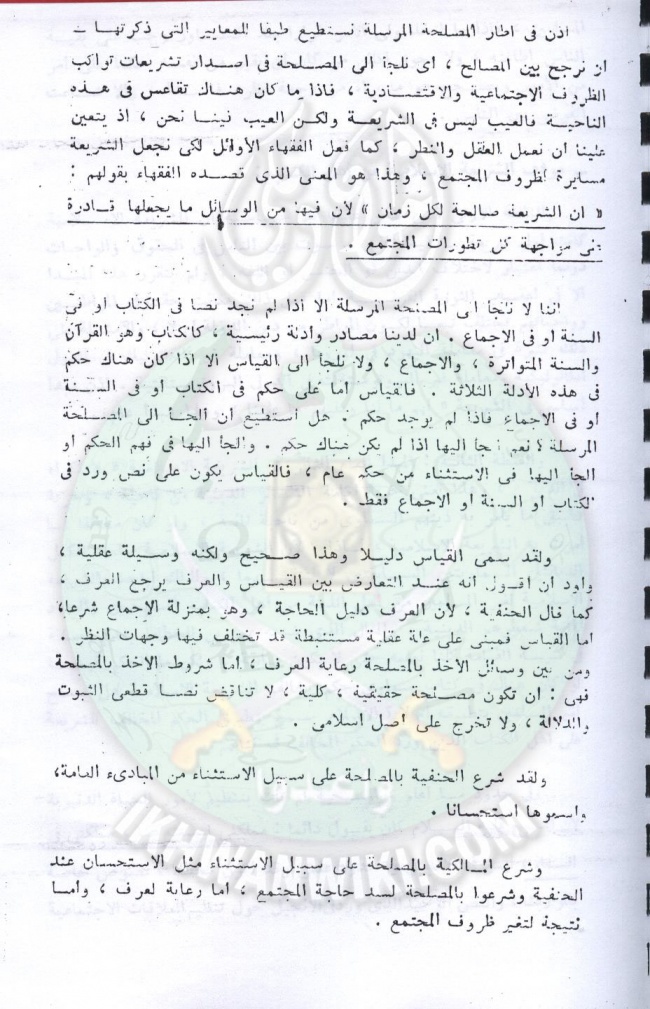 اذن فى اطار المصلحة المرسلة نستطيع طبقا للمعايير التى ذكرتها ــ
ان نرجح بين المصالح ، اى نلجأ الى المصلحة فى اصدار تشريعات تواكب
الظروف الاجتماعية والاقتصادية ، فاذا ما كان هناك تقاعس فى هذه
الناحية فالعيب ليس فى الشريعة ولكن العيب فينا نحن ، اذ يتعين
علينا ان نعمل العقل والنظر ، كما فعل الفقهاء الأوائل لكى نجعل الشريعة
مسايرة لظروف المجتمع ، وهذا هو المعنى الذى قصده الفقهاء بقولهم :
« ان الشريعة صالحة لكل زمان » لأن فيها من الوسائل ما يجعلها قادرة
على مواجهة كل تطورات المجتمع .
اننا لا نلجأ الى المصلحة المرسلة الا اذا لم نجد نصا فى الكتاب او فى
السنة او فى الاجماع . ان لدينا مصادر وأدلة رئيسية ، كالكتاب وهو القرآن
والسنة المتواترة ، والاجماع ، ولا نلجأ الى القياس الا اذا كان هناك حكم
فى هذه الأدلة الثلاثة . فالقياس اما على حكم فى الكتاب أو فى السنة
أو فى الاجماع فاذا لم يوجد حكم . هل أستطيع أن ألجأ الى المصلحة
المرسلة ؟ نعم ألجأ اليها اذا لم يكن هناك حكم . وألجأ اليها فى فهم الحكم او
ألجأ اليها فى الاستثناء من حكم عام ، فالقياس يكون على نص ورد فى
الكتاب او السنة او الاجماع فقط .
ولقد سمى القياس دليلا وهذا صحيح ولكنه وسيلة عقلية ،
وأود ان اقول انه عند التعارض بين القياس والعرف يرجح العرف ،
كما قال الحنفية ، لأن العرف دليل الحاجة ، وهو بمنزلة الاجماع شرعا،
اما القياس فمبنى على علة عقلية مستنبطة قد تختلف فيها وجهات النظر .
ومن بين وسائل الأخذ بالمصلحة رعاية العرف ، أما شروط الاخذ بالمصلحة
فهى : ان تكون مصلحة حقيقية ، كلية ، لا تناقض نصا قطعى الثبوت
والدلالة ، ولا تخرج على أصل اسلامى .
ولقد شرع الحنفية بالمصلحة على سبيل الاستثناء من المبادىء العامة،
واسموها استحسانا .
وشرع المالكية بالمصلحة على سبيل الاستثناء مثل الاستحسان عند
الحنفية وشرعوا بالمصلحة لسد حاجة المجتمع ، أما رعاية لعرف ، وأما
نتيجة لتغير ظروف المجتمع .
وأعدوا
IKHWANWIKI.COM